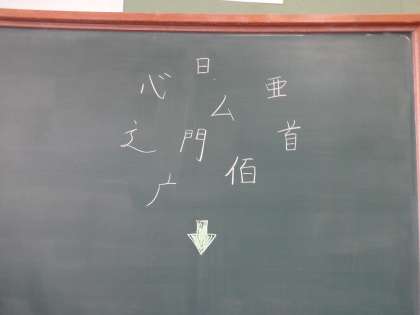 日
心
亜
ム
辶
門
首
佰
广